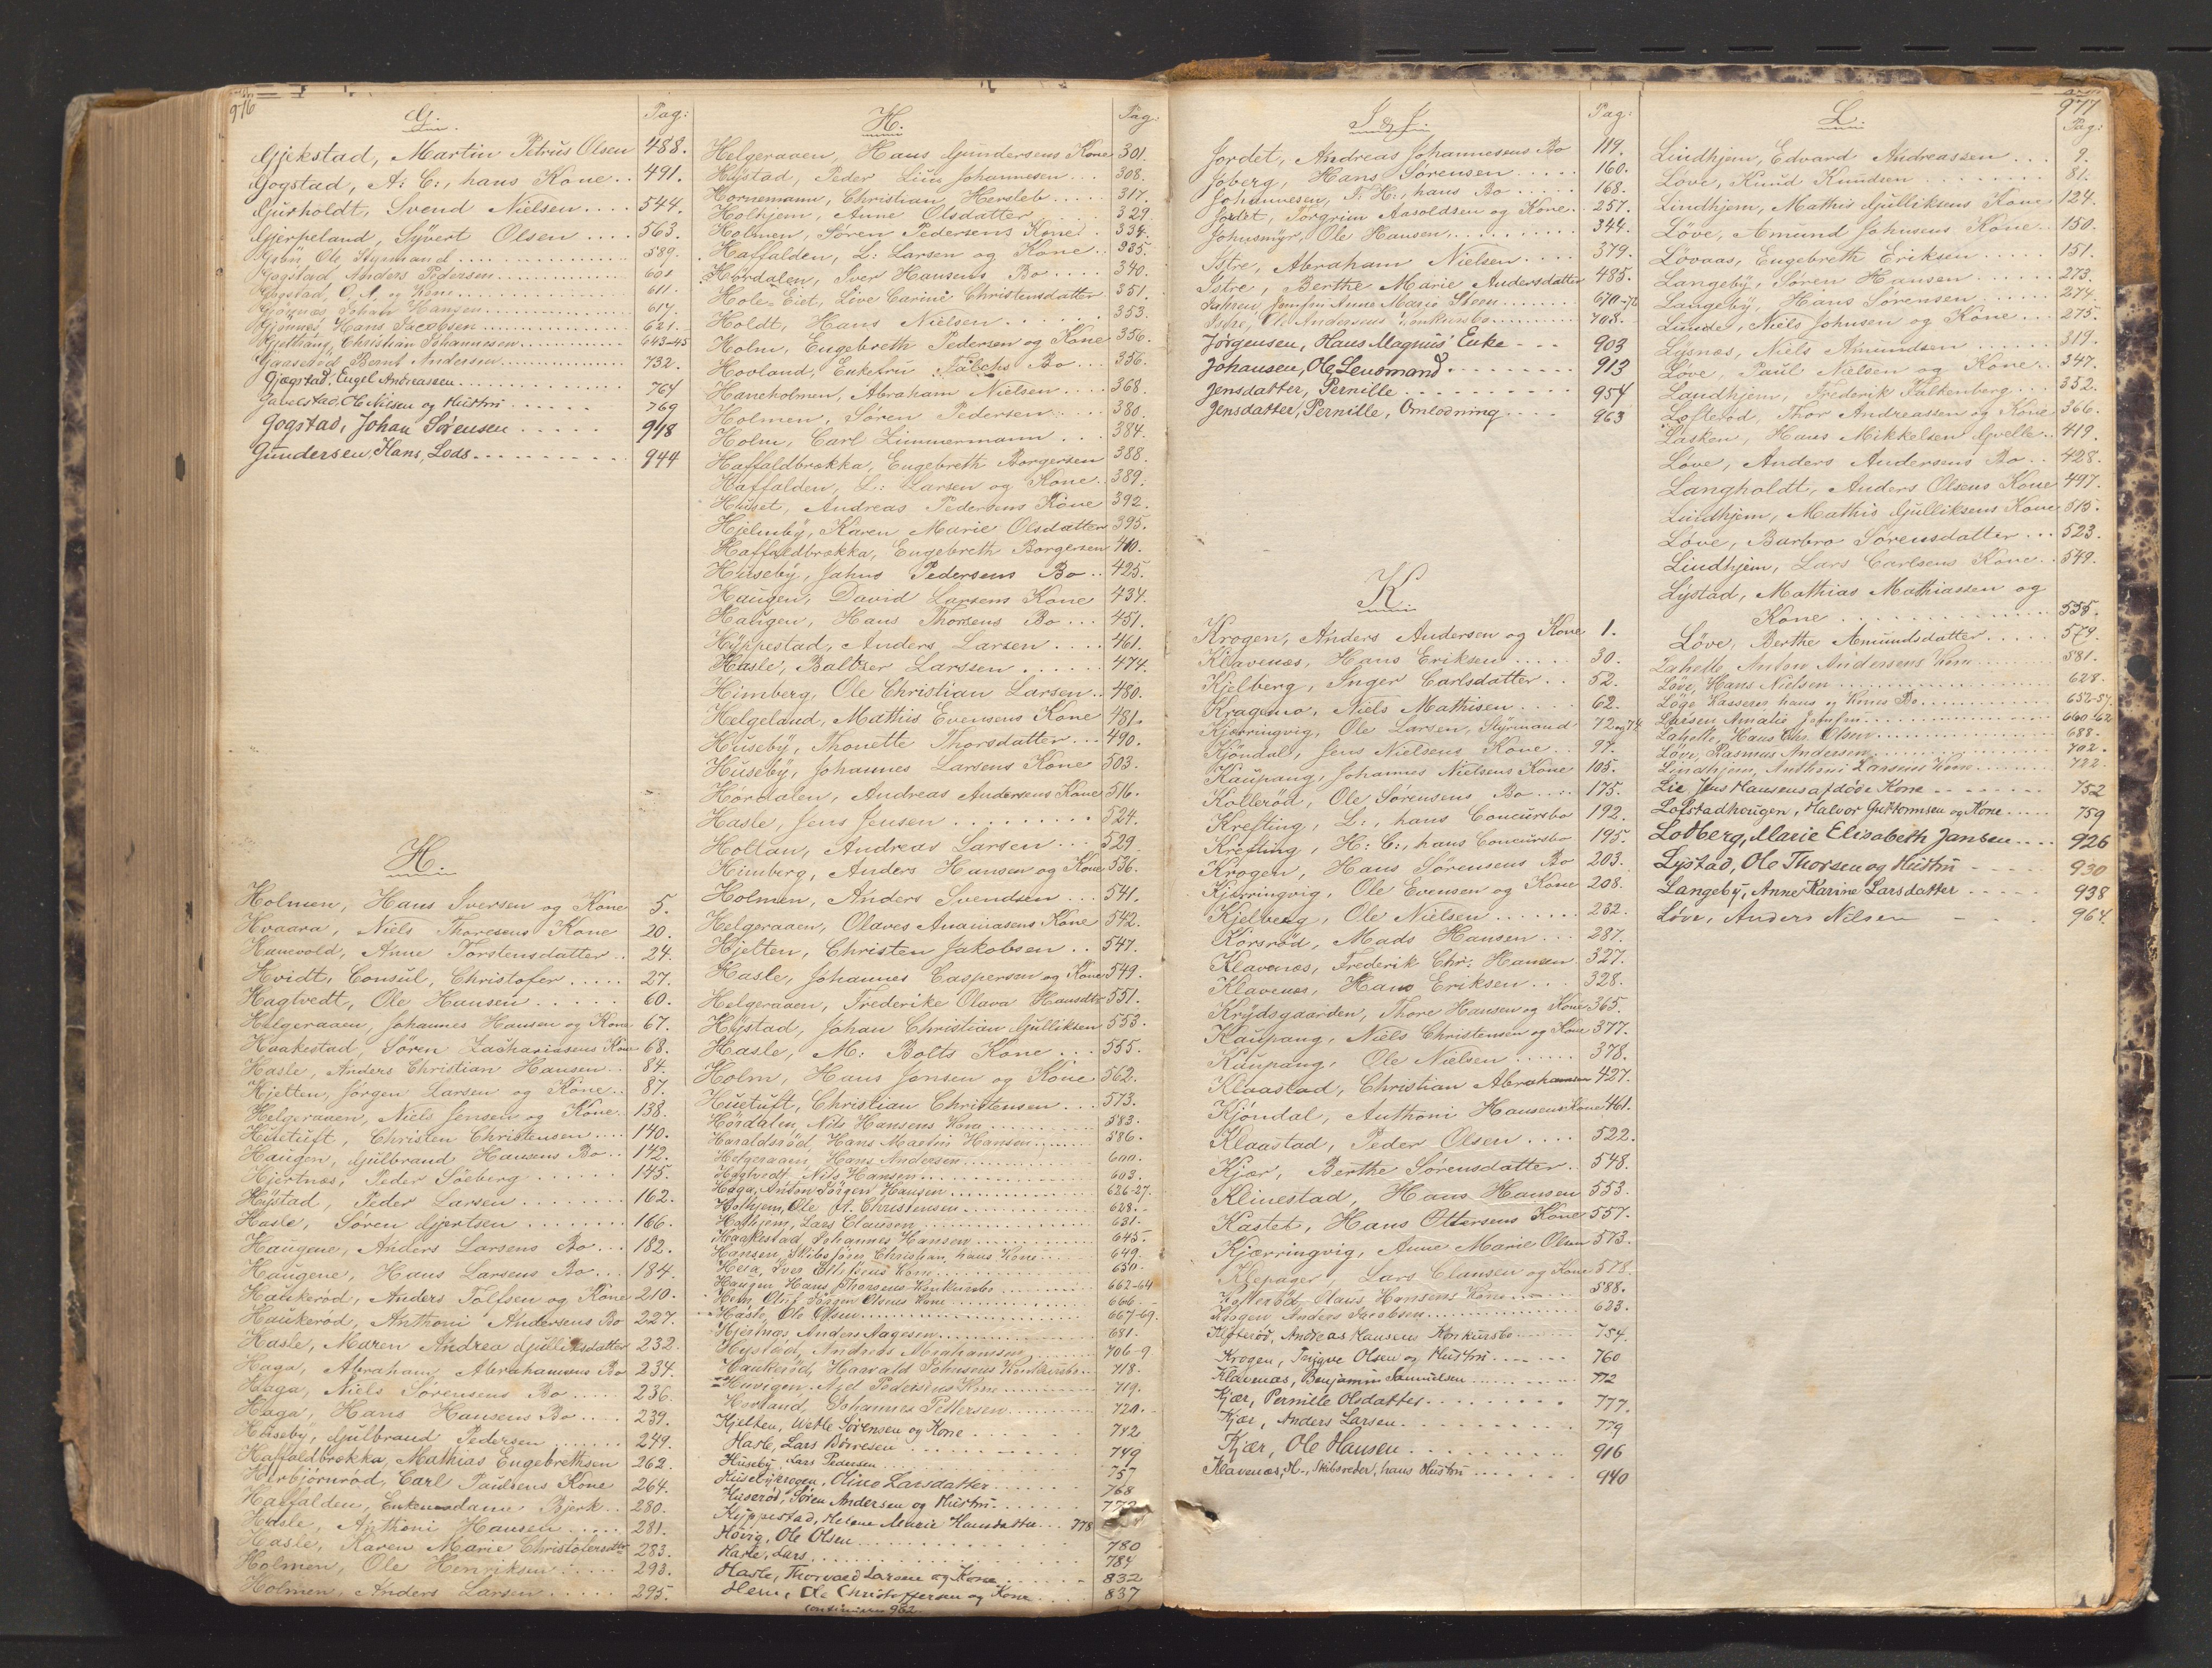 976
G.
Pag:
Gjekstad, Martin Petrus Olsen 488.
Gogstad, A: C:, hans Kone .. 491.
Gurholdt, Svend Nielsen .... 544.
Gjerpeland, Syvert Olsen .... 563.
Ole Styrmand ... 589.
Gogstad, Anders Pedersen ... 601
Gogstad, O. A. og Kone ... 611.
Johan Hansen ... 617.
Gjönnes, Hans Jacobsen ... 621.
Christian Johannesen ... 643-45
Bernt Andersen ... 732.
Gjøgstad, Engel Andreassen ... 764
Ole Nilsen og Hustru ... 769
Gogstad, Johan Sørensen ..... 918
Gundersen, Hans, Lods ......... 944
H.
Holmen, Hans Iversen og Kone 5.
Hvaara, Niels Thoresens Kone 20.
Hanevold, Anne Torstensdatter .. 24.
Hvidt, Consul, Christofer ..... 27.
Hagtvedt, Ole Hansen ..... 60.
Helgeraaen, Johannes Hansen og Kone 67.
Haakestad, Søren Zachariasens Kone 68.
Hasle, Anders Christian Hansen .. 84.
Hjelten, Jørgen Larsen og Kone .. 87.
Helgeraaen, Niels Jensen og Kone .. 138.
Huetuft, Christen Christensen .... 140.
Haugen, Gulbrand Hansens Bo .. 142.
Hjertnæs, Peder Söeberg ...... 145.
Hystad, Peder Larsen ........ 162.
Hasle, Søren Gjertsen ........ 166.
Haugene, Anders Larsens Bo ... 182.
Haugene, Hans Larsens Bo ... 184.
Haukerød, Anders Tolfsen og Kone 210.
Haukerød, Anthoni Andersens Bo 227.
Hasle, Maren Andrea Gulliksdatter 232.
Haga, Abraham Abrahamsens Bo 234.
Haga, Niels Sørensens Bo ..... 236.
Haga, Hans Hansens Bo .... 239.
Huseby, Gulbrand Pedersen ....... 249.
Haffaldbrækka, Mathias Engebrethsen 262.
Herbjörnröd, Carl Paulsens Kone 264.
Haffalden, Enkemadame Bjerk .. 280.
Hasle, Anthoni Hansen ..... 281.
Hasle, Karen Marie Christofersdtr 283.
Holmen, Ole Henriksen ..... 293.
Holmen, Anders Larsen ..... 295.
H.
Pag:
Helgeraaen, Hans Gundersens Kone 301.
Hystad, Peder Liur Johannesen ... 308.
Hornemann, Christian Hersleb ..... 317.
Holhjem, Anne Olsdatter ..... 329.
Holmen, Søren Pedersens Kone .. 334.
Haffalden, L: Larsen og Kone .. 335.
Hørdalen, Iver Hansens Bo .... 340.
Hole-Eiet, Live Carine Christensdatter 351.
Holdt, Hans Nielsen ...... 353.
Holm, Engebreth Pedersen og Kone 356.
Hovland, Enkefru Falchs Bo ... 356.
Haneholmen, Abraham Nielsen .... 368.
Holmen, Søren Pedersen ...... 380.
Holm, Carl Zimmermann ... 384.
Haffaldbrækka, Engebreth Borgersen 388.
Haffalden, L: Larsen og Kone .. 389.
Huset, Andreas Pedersens Kone 392.
Hjelmby, Karen Marie Olsdatter 395.
Haffaldbrækka, Engebreth Borgersen 410.
Huseby, Jahns Pedersens Bo .. 425.
Haugen, David Larsens Kone 434.
Haugen, Hans Thorsens Bo ... 451.
Hyppestad, Anders Larsen .... 461.
Hasle, Baltzer Larssen ...... 474.
Himberg, Ole Christian Larsen .. 480.
Helgeland, Mathis Evensens Kone 481.
Huseby, Thonette Thorsdatter ... 490.
Huseby, Johannes Larsens Kone 503.
Hørdalen, Andreas Andersens Kone 516.
Hasle, Jens Jensen ......... 524.
Holtan, Andreas Larsen ... 529.
Himberg, Anders Hansen og Kone 536.
Holmen, Anders Svendsen ... 541.
Helgeraaen, Olaves Ananiasens Kone 542.
Hjelten, Christen Jakobsen .. 547.
Hasle, Johannes Caspersen og Kone 549.
Helgeraaen, Frederike Olava Hansdtr 551.
Hystad, Johan Christian Gulliksen 553.
Hasle, M: Bolts Kone ... 555.
Holm, Hans Jensen og Kone 562.
Huetuft, Christian Christensen ... 573.
Hørdalen, Nils Hansens Kone ... 583.
Haraldsrød, Hans Martin Hansen ... 586.
Helgeraaen, Hans Andersen ... 600.
Hagtvedt, Nils Hansen ... 603.
Haga, Anton Jörgen Hansen ... 626-27.
Holhjem, Ole A. Christensen ... 628.
Holhjem, Lars Clausen ... 631.
Haakestad, Johannes Hansen ... 645.
Hansen, Skibsförer Christian, hans Kone ... 649.
Heia, Iver Kone ... 650.
Haugen, Hans Thorsens Konkursbo ... 662-64
Hem, Oluf Jörgen Olsens Kone ... 666
Hasle, Ole Olsen ... 667-69.
Hjertnæs, Anders Aagesen ... 681.
Hystad, Andreas Abrahamsen ... 706-9
Haukeröd, Haarvald Johnsens Konkursbo .. 718.
Axel Pedersens Kone ... 719.
Hovland, Johannes Pettersen ... 720.
Hjelten, Wetle Sörensen og Kone ... 742
Hasle, Lars Börresen ... 749
Huseby, Lars Pedersen ... 757
Husebykrogen, Oline Larsdatter ... 768
Huserød, Søren Andersen og Hustru ...
Hyppestad, Helene Marie Hansdatter ... 778
Høvig, Ole Olsen ... 780
Hasle, Lars ... 784
Hasle, Thorvald Larsen og Kone ... 832
Hem, Ole Christoffersen og Kone ... 837
continueres 982.
I & J.
Pag:
Jordet, Andreas Johannesens Bo 119.
Joberg, Hans Sørensen ..... 160.
Johannesen, T: H:, hans Bo .... 168.
Jordet, Torgrim Aasoldsen og Kone .. 257.
Johnsmyr, Ole Hansen .......... 344.
Istre, Abraham Nielsen .... 379.
Istre, Berthe Marie Andersdatter 485.
Jomfru Anne Marie Steen ... 670-72
Istre, Ole Andersens Konkursbo ... 708.
Jörgensen, Hans Magnus' Enke - - - 903
Johansen, Ole, Lensmand ......... 913
Jensdatter, Pernille ......... 954
Jensdatter, Pernille, Omlodning .... 963
K
Krogen, Anders Andersen og Kone 1.
Klavenæs, Hans Eriksen ..... 30.
Kjelberg, Inger Carlsdatter .. 52.
Kragemo, Niels Mathisen .... 62.
Kjærringvig, Ole Larsen, Styrmand 72 og 74
Kjöndal, Jens Nielsens Kone .. 97.
Kaupang, Johannes Nielsens Kone 105.
Kollerød, Ole Sørensens Bo .... 175.
Krefting, L:, hans Concursbo 192.
Krefting, H: C:, hans Concursbo 195.
Krogen, Hans Sørensens Bo 203.
Kjærringvig, Ole Evensen og Kone 208.
Kjelberg, Ole Nielsen ....... 232.
Korsrød, Mads Hansen ... 287.
Klavenæs, Frederik Chr: Hansen 327.
Klavenæs, Hans Eriksen ... 328.
Krydsgaarden, Thore Hansen og Kone 365.
Kaupang, Niels Christensen og Kone 377.
Kaupang, Ole Nielsen ...... 378.
Klaastad, Christian Abrahamsen 427.
Kjöndal, Anthoni Hansens Kone 461.
Klaastad, Peder Olsen .... 522.
Kjær, Berthe Sørensdatter . 548.
Klinestad, Hans Hansen 553.
Kastet, Hans Ottersens Kone 557.
Kjærringvig, Anne Marie Olsen 573.
Klepager, Lars Clausen og Kone 578.
Kollerød, Claus Hansens Kone ... 588.
Krogen, Anders Jacobsen ... 623.
Andreas Hansens Konkursbo ... 754.
Krogen, Trygve Olsen og Hustru ... 760
Klavenæs, Benjamin Samuelsen ... 772
Kjær, Pernille Olsdatter ... 777.
Kjær, Anders Larsen ... 779
Kjær, Ole Hansen ... 916
Klavenæs, H., Skibsreder, hans Hustru ... 940
L.
977
Pag:
Lindhjem, Edvard Andreassen ... 9.
Løve, Knud Knudsen ....... 81.
Lindhjem, Mathis Gulliksens Kone 124.
Løve, Amund Johnsens Kone .. 150.
Løvaas, Engebreth Eriksen ..... 151.
Langeby, Søren Hansen ...... 273.
Langeby, Hans Sørensen ..... 274.
Lunde, Niels Johnsen og Kone ... 275.
Lysnæs, Niels Amundsen ..... 319.
Løve, Paul Nielsen og Kone .. 347.
Landhjem, Frederik Falkenberg .. 352.
Løfterød, Thor Andreassen og Kone 366.
Lasken, Hans Mikkelsen Gvelle .. 419.
Løve, Anders Andersens Bo .. 428.
Langholdt, Anders Olsens Kone 497.
Lindhjem, Mathis Gulliksens Kone 515.
Løve, Barbro Sørensdatter ... 523.
Lindhjem, Lars Carlsens Kone .. 549.
Lystad, Mathias Mathiassen og
Kone ............ 555.
Løve, Berthe Amundsdatter ..... 579.
Lahelle, Anton Andersens Kone ... 581.
Løve, Hans Nielsen ... 628.
Løge Kasserer hans og Kones Bo ... 652-57.
Larsen, Amalie Jomfru ... 660-62
Lahelle, Hans Chr. Olsen ... 688.
Løve, Rasmus Andersen ... 702.
Lindhjem, Anthoni Larsens Kone ... 722.
Lie, Jens Hansens afdøde Kone ... 752
Løfstadhaugen, Halvor Guttormsen og Kone ..... 759
Lodberg, Marie Elisabeth Jansen .... 926
Lystad, Ole Thorsen og Hustru - - 930
Langeby, Anne Karine Larsdatter ..... 938
Løve, Anders Nilsen - - . 964.